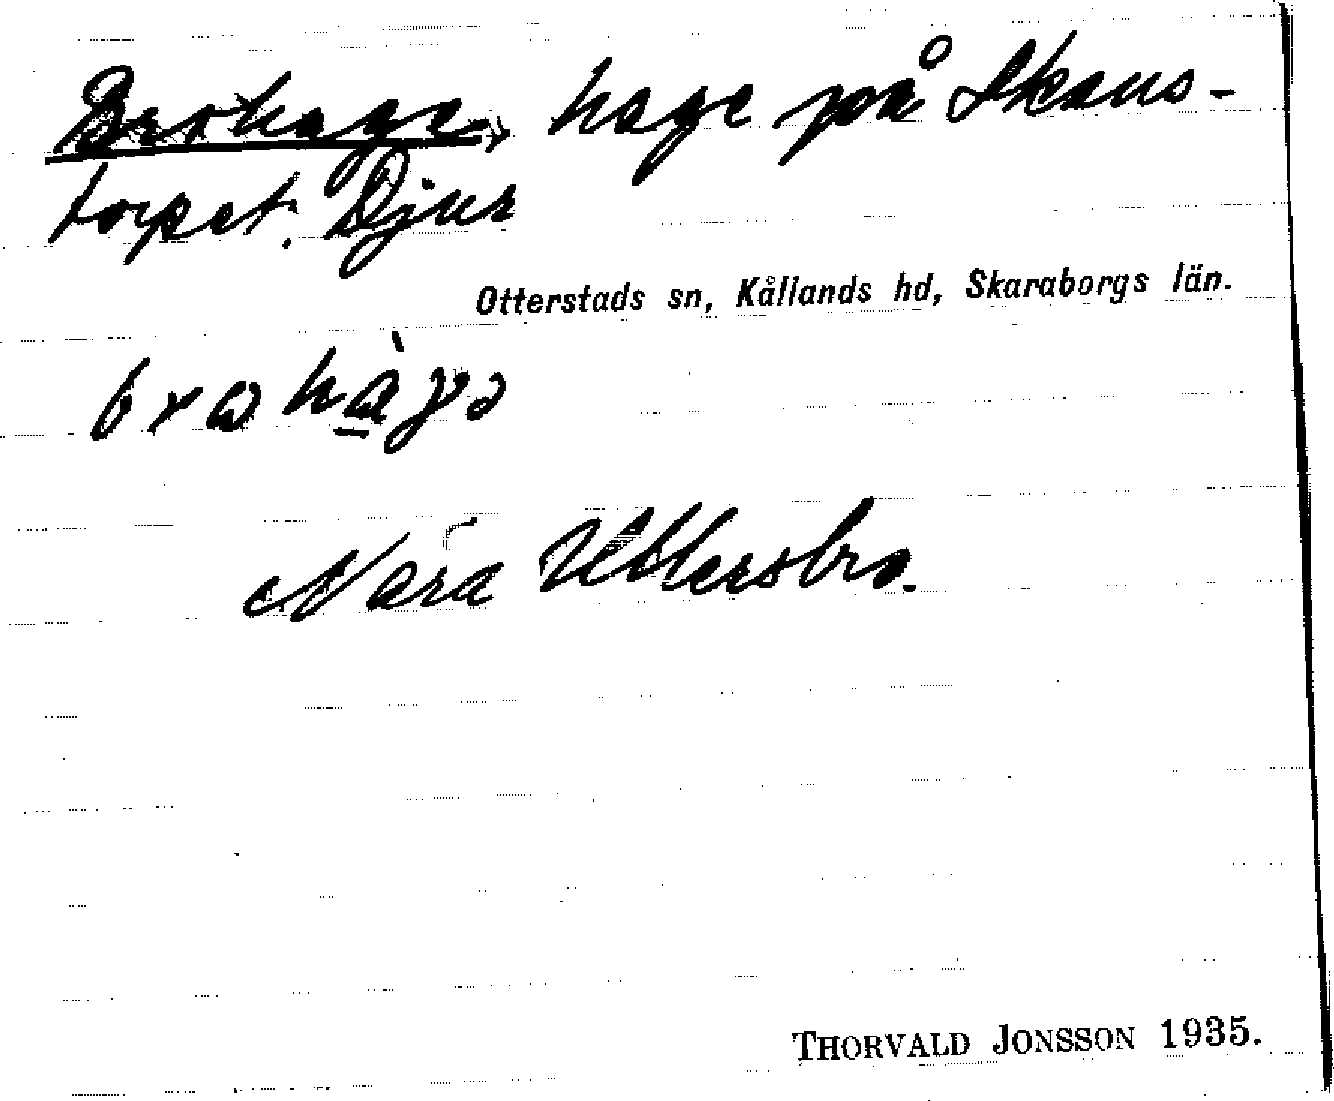 Brohage, hage på Skans-
torpet. Djur
Otterstads sn, Kållands hd, Skaraborgs län.
brωhàgə
Nära Uttersbro.
THORVALD JONSSON 1935.